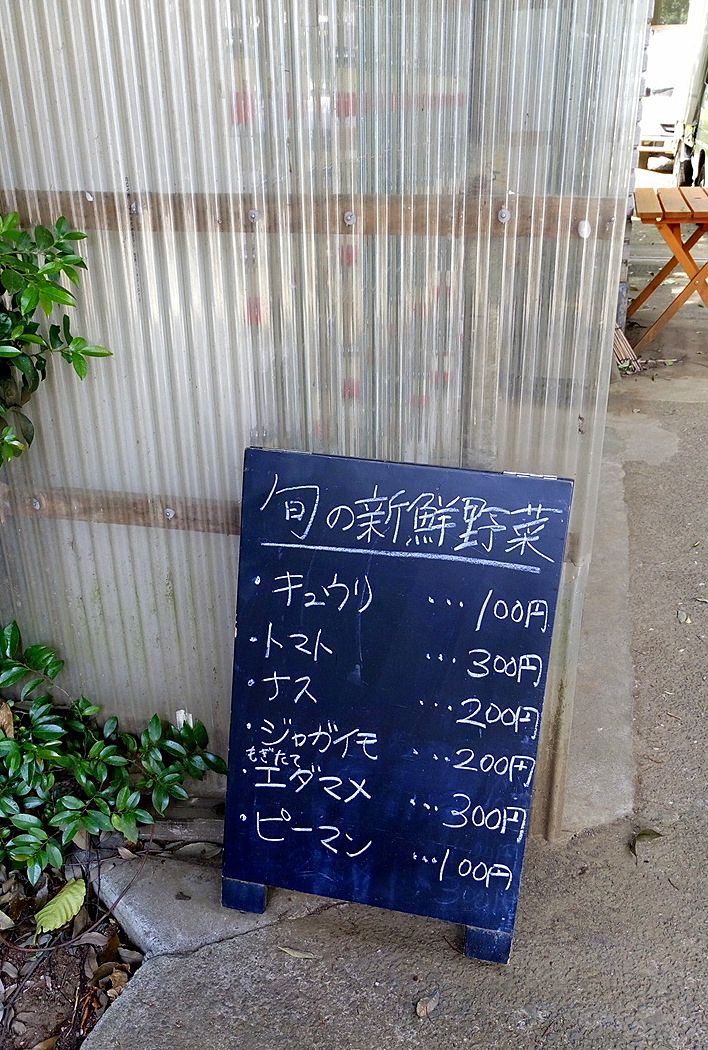 旬の新鮮野菜
・キュウリ …100円
・トマト …300円
・ナス …200円
・ジャガイモ …200円
もぎたて
・エダマメ …300円
・ピーマン …100円